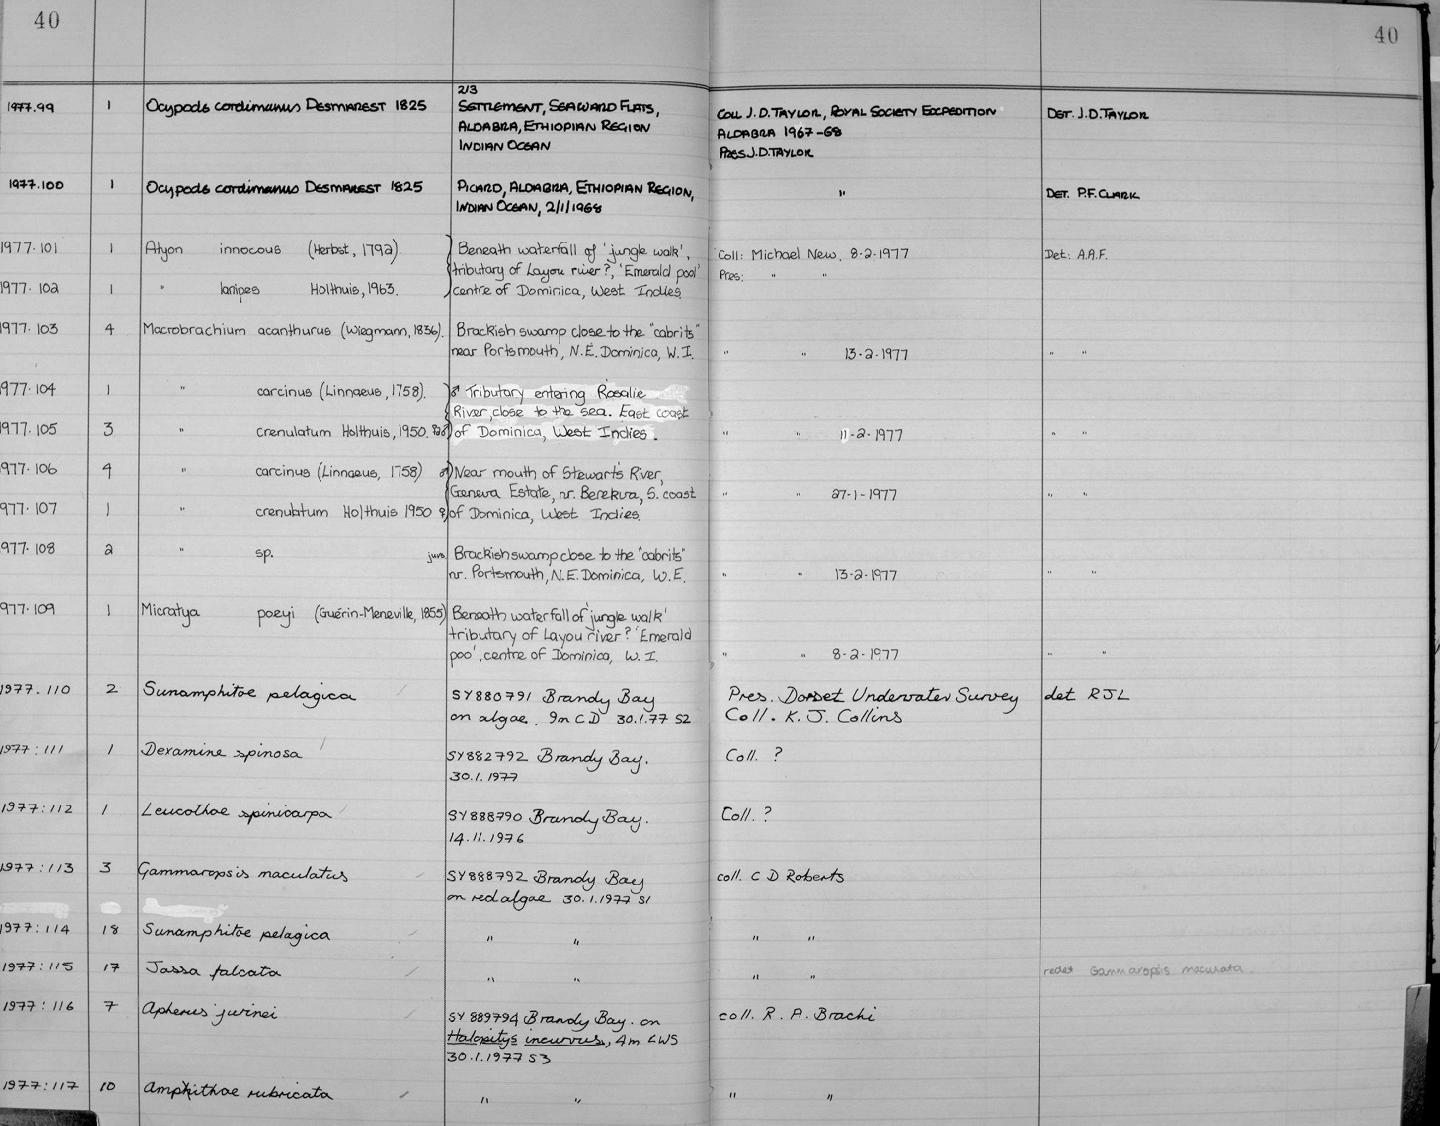 40
40
2/3
1977.99 1 Ocypode cordimanus DESMAREST 1825 SETTLEMENT, SEAWARD FLATS, COLL J.D. TAYLOR, ROYAL SOCIETY EXPEDITION DET. J.D. TAYLOR
ALDABRA, ETHIOPIAN REGION ALDABRA 1967-68
INDIAN OCEAN PRES J.D. TAYLOR
1977.100 1 Ocypode cordimanus DESMAREST 1825 PICARD, ALDABRA, ETHIOPIAN REGION, " DET. P.F. CLARK
INDIAN OCEAN, 2/1/1968
1977.101 1 Atyon innocous (Herbst, 1792) Beneath waterfall of 'jungle walk', Coll: Michael New. 8-2-1977 Det: A.A.F.
tributary of Layou river?, 'Emerald pool' Pres: " "
1977.102 1 " lanipes Holthuis, 1963. centre of Dominica, West Indies.
1977.103 4 Macrobrachium acanthurus (Wiegmann, 1836). Brackish swamp close to the "cabrits"
near Portsmouth, N.E. Dominica, W.I. " " 13-2-1977 " "
1977.104 1 " carcinus (Linnaeus, 1758). ♂ Tributary entering Rosalie
River, close to the sea. East coast
1977.105 3 " crenulatum Holthuis, 1950. of Dominica, West Indies. " " 11-2-1977 " "
1977.106 4 " carcinus (Linnaeus, 1758) ♂ Near mouth of Stewarts River,
Geneva Estate, nr. Berekua, S. coast " " 27-1-1977 " "
977.107 1 " crenulatum Holthuis 1950 ♀ of Dominica, West Indies.
977.108 2 " sp. juvs. Brackish swamp close to the "cabrits"
nr. Portsmouth, N.E. Dominica, W.E. " " 13-2-1977 " "
977.109 1 Micratya poeyi (Guérin-Meneville, 1855) Beneath waterfall of 'jungle walk'
tributary of Layou river? 'Emerald
poo', centre of Dominica, W.I. " " 8-2-1977 " "
1977.110 2 Sunamphitoe pelagica SY880791 Brandy Bay Pres. Dorset Underwater Survey det RJL
on algae. 9m C D 30.1.77 S2 Coll. K. J. Collins
1977:111 1 Dexamine spinosa SY882792 Brandy Bay. Coll. ?
30.1.1977
1977:112 1 Leucothoe spinicarpa SY888790 Brandy Bay. Coll. ?
14.11.1976
1977:113 3 Gammaropsis maculatus SY888792 Brandy Bay coll. C D Roberts
on red algae 30.1.1977 S1
1977:114 18 Sunamphitoe pelagica " " " "
1977:115 17 Jassa falcata " " " " redet Gammaropsis maculata
1977:116 7 Apherus jurinei SY 889794 Brandy Bay. on coll. R. A. Brachi
Halopitys incurvus, 4m LWS
30.1.1977 S3
1977:117 10 Amphithoe rubricata " " " "